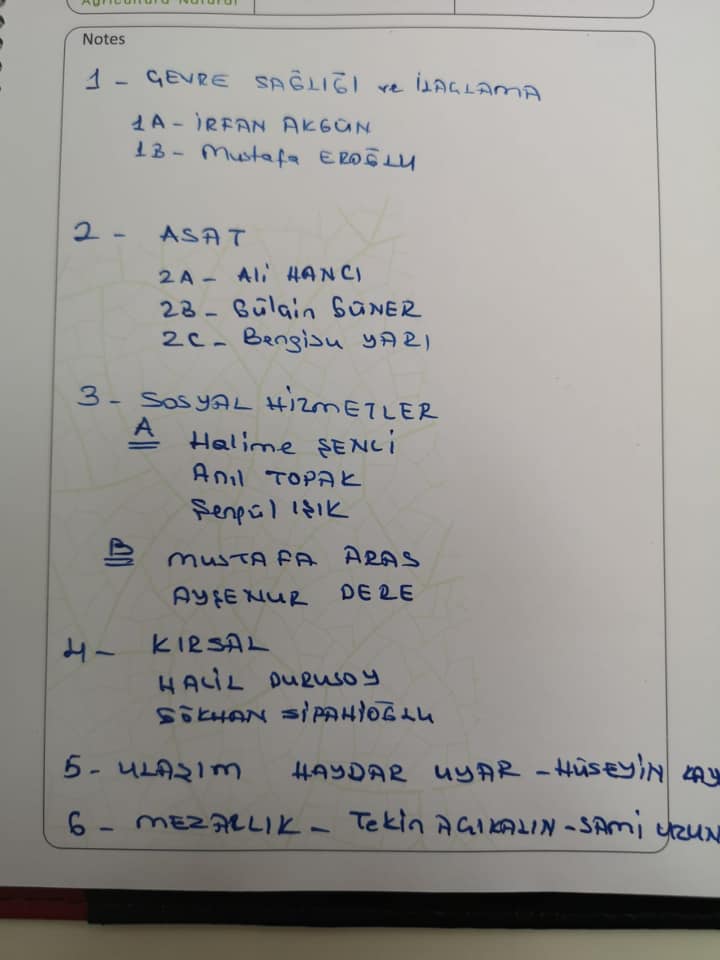 Agricultura Natural
Notes
1 - ÇEVRE SAĞLIĞI ve İLAÇLAMA
1A - İRFAN AKGÜN
1B - Mustafa EROĞLU
2 - ASAT
2A - Ali HANCI
2B - Gülçin GÜNER
2C - Bengisu YARI
3 - SOSYAL HİZMETLER
A Halime ŞENCİ
Anıl TOPAK
Şengül IŞIK
B MUSTAFA ARAS
AYŞENUR DERE
4 - KIRSAL
HALİL DURUSOY
GÖKHAN SİPAHİOĞLU
5 - ULAŞIM HAYDAR UYAR - HÜSEYİN
6 - MEZARLIK - Tekin AÇIKALIN - SAMİ UZUN